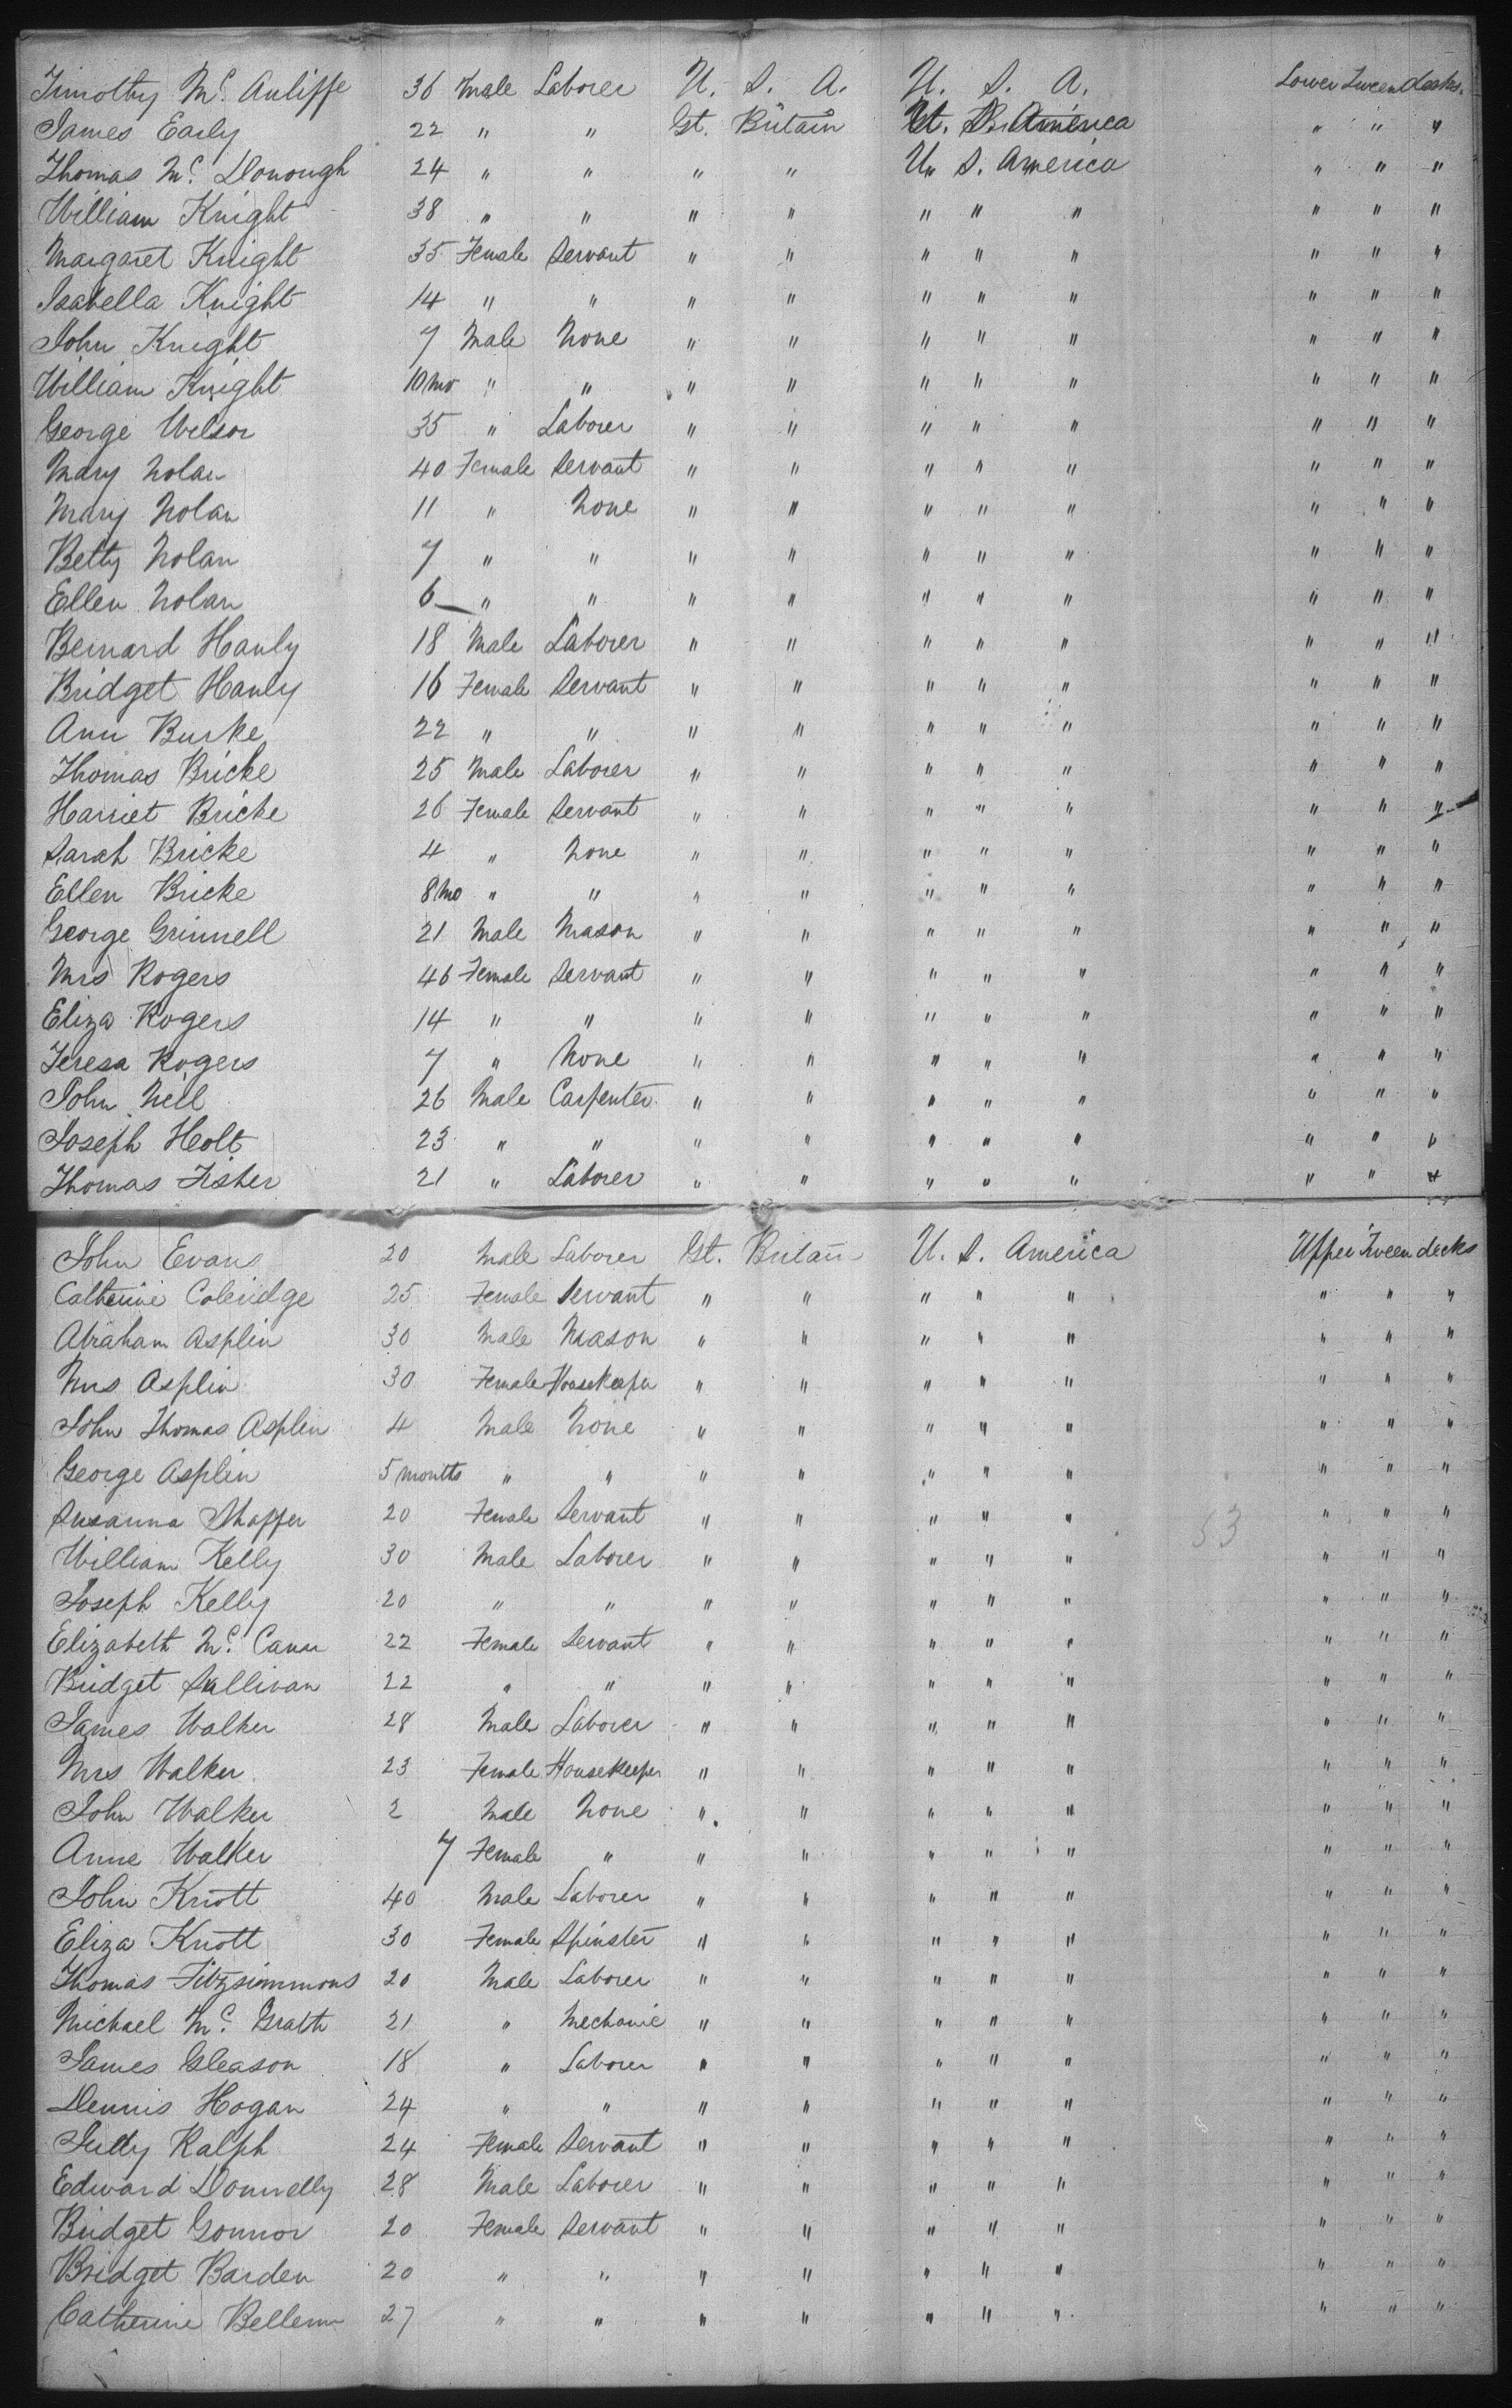 Timothy Mc. Auliffe 36 Male Laborer U. S. A. U. S. A. Lower Tween decks.
James Early 22 " " Gt. Britain America " " "
Thomas Mc. Donough 24 " " " " U. S. America " " "
William Knight 38 " " " " " " " " " "
Margaret Knight 35 Female Servant " " " " " " " "
Isabella Knight 14 " " " " " " " " " "
John Knight 7 Male None " " " " " " " "
William Knight 10 mo " " " " " " " " " "
George Wilson 35 " Laborer " " " " " " " "
Mary Nolan 40 Female Servant " " " " " " " "
Mary Nolan 11 " None " " " " " " " "
Betty Nolan 7 " " " " " " " " " "
Ellen Nolan 6 " " " " " " " " " "
Bernard Hanly 18 Male Laborer " " " " " " " "
Bridget Hanly 16 Female Servant " " " " " " " "
Ann Burke 22 " " " " " " " " " "
Thomas Bricke 25 Male Laborer " " " " " " " "
Harriet Bricke 26 Female Servant " " " " " " " "
Sarah Bricke 4 " None " " " " " " " "
Ellen Bricke 8 mo " " " " " " " " " "
George Grinnell 21 Male Mason " " " " " " " "
Mrs Rogers 46 Female Servant " " " " " " " "
Eliza Rogers 14 " " " " " " " " " "
Teresa Rogers 7 " None " " " " " " " "
John Neil 26 Male Carpenter " " " " " " " "
Joseph Holt 23 " " " " " " " " " "
Thomas Fisher 21 " Laborer " " " " " " " "
John Evans 20 Male Laborer Gt. Britain U. S. America Upper Tween decks
Catherine Coleridge 25 Female Servant " " " " " " " "
Abraham Asplin 30 Male Mason " " " " " " " "
Mrs Asplin 30 Female Housekeeper " " " " " " " "
John Thomas Asplin 4 Male None " " " " " " " "
George Asplin 5 months " " " " " " " " " "
Susanna 20 Female Servant " " " " " 53 " " "
William Kelly 30 Male Laborer " " " " " " " "
Joseph Kelly 20 " " " " " " " " " "
Elizabeth Mc. 22 Female Servant " " " " " " " "
Bridget Sullivan 22 " " " " " " " " " "
James Walker 28 Male Laborer " " " " " " " "
Mrs Walker 23 Female Housekeeper " " " " " " " "
John Walker 2 Male None " " " " " " " "
Anne Walker 7 Female " " " " " " " " "
John Knott 40 Male Laborer " " " " " " " "
Eliza Knott 30 Female Spinster " " " " " " " "
Thomas Fitzsimmons 20 Male Laborer " " " " " " " "
Michael Mc. Grath 21 " Mechanic " " " " " " " "
James Gleason 18 " Laborer " " " " " " " "
Dennis Hogan 24 " " " " " " " " " "
Judy Ralph 24 Female Servant " " " " " " " "
Edward Donnelly 28 Male Laborer " " " " " " " "
Bridget Gonnor 20 Female Servant " " " " " " " "
Bridget Barden 20 " " " " " " " " " "
Catherine 27 " " " " " " " " " "